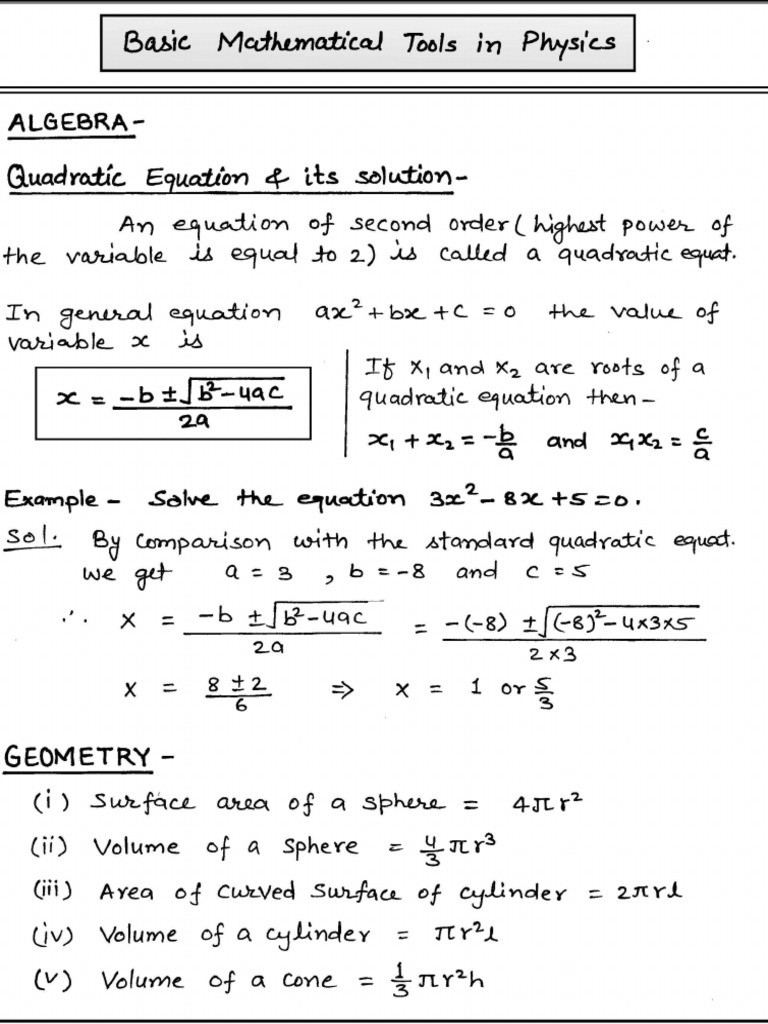 Basic Mathematical Tools in Physics
ALGEBRA -
Quadratic Equation & its solution -
An equation of second order ( highest power of
the variable is equal to 2) is called a quadratic equat.
In general equation ax² + bx + c = 0 the value of
variable x is
x = (-b ± √(b² - 4ac)) / 2a
If x₁ and x₂ are roots of a
quadratic equation then -
x₁ + x₂ = -b/a and x₁x₂ = c/a
Example - Solve the equation 3x² - 8x + 5 = 0.
Sol. By comparison with the standard quadratic equat.
we get a = 3 , b = -8 and c = 5
∴ x = (-b ± √(b² - 4ac)) / 2a = (-(-8) ± √((-8)² - 4×3×5)) / (2×3)
x = (8 ± 2) / 6 ⇒ x = 1 or 5/3
GEOMETRY -
(i) Surface area of a sphere = 4πr²
(ii) Volume of a sphere = 4/3 πr³
(iii) Area of curved surface of cylinder = 2πrl
(iv) Volume of a cylinder = πr²l
(v) Volume of a cone = 1/3 πr²h